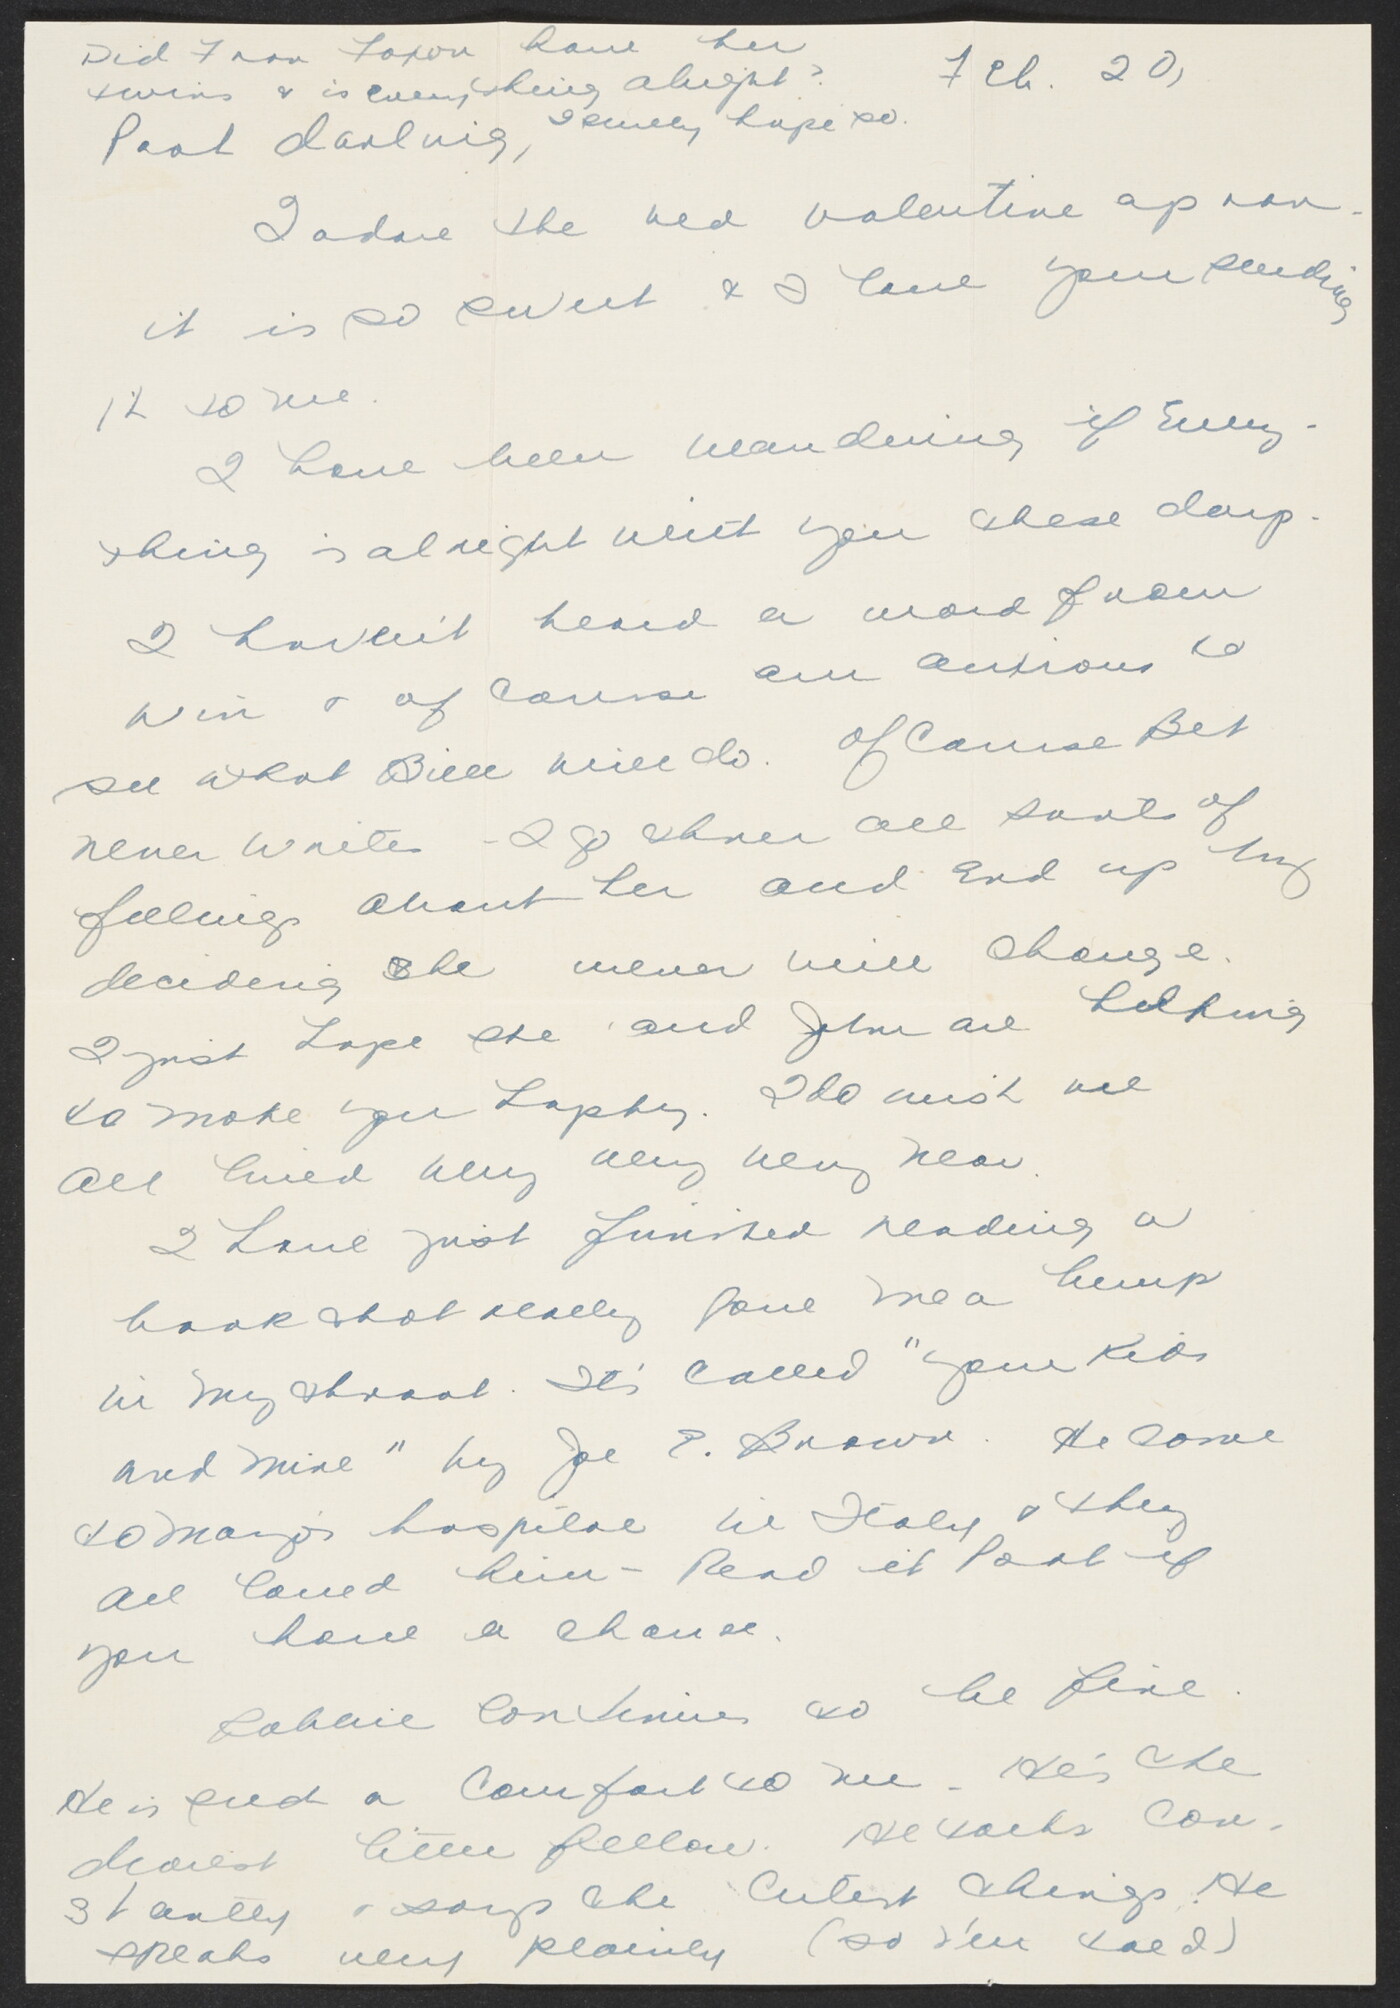 Did Fran Faxon have her
twins & is everything alright?
I surely hope so.
Feb. 20,
Poot darling,
I adore the red valentine apron -
it is so sweet & I love your sending
it to me.
I have been wondering if every-
thing is alright with you these days.
I haven't heard a word from
Win & of course am anxious to
see what Bill will do. Of course Bet
never writes - I go thru all sorts of
feelings about her and end up by
deciding she never will change.
I just hope she and John are helping
to make you happy. I do wish we
all lived very very very near.
I have just finished reading a
book that really gave me a lump
in my throat. It's called "Your Kids
and Mine" by Joe E. Brown. He came
to Marj's hospital in Italy & they
all loved him - Read it Poot if
you have a chance.
Robbie continues to be fine.
He is such a comfort to me - He's the
dearest little fellow. He talks con-
stantly & says the cutest things. He
speaks very plainly (so I'm told)